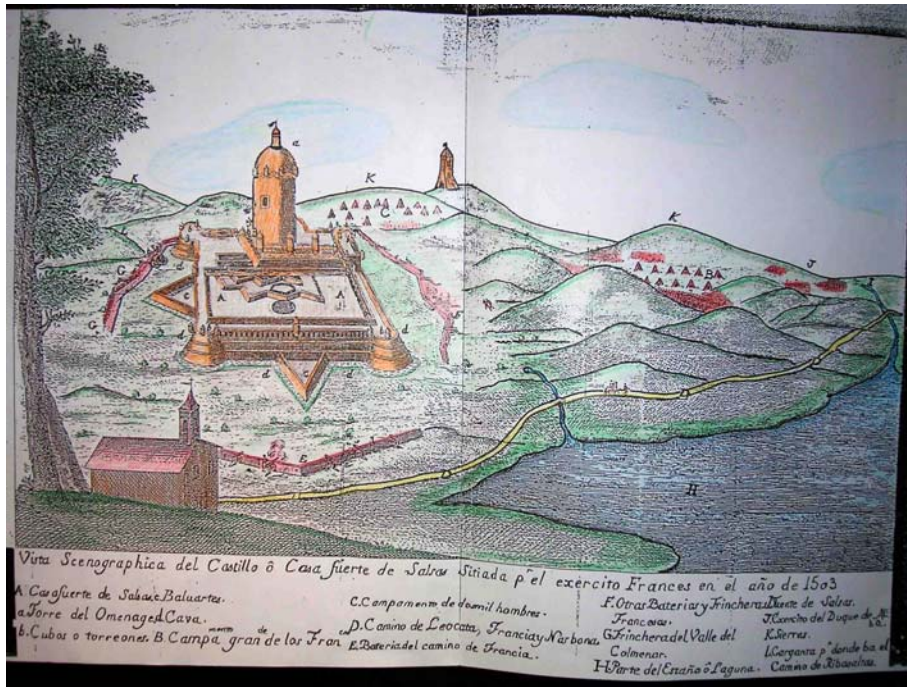 Vista Scenographica del Castillo ô Casa fuerte de Salsas Sitiada pr el exército Frances en el año de 1503
A Casa fuerte de Salsas. c Baluartes.
a Torre del Omenage. d Cava.
b. Cubos o torreones. B. Campamento grande de los Fran
C. Campamento de dos mil hombres.
D. Camino de Leocata, Francia y Narbona.
E. Bateria del camino de Francia.
F. Otras Baterias y Trincheras
Francesas.
G Trinchera del Valle del
Colmenar.
H Parte del Estaño ô Laguna.
Fuente de Salsas.
J. Exercito del Duque de
K Sierras.
l. Garganta pr donde ba el
Camino de Ribasaltas.